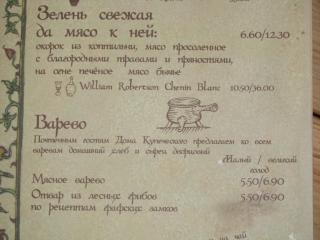 Зелень свежая
да мясо к ней: 6.60/12.30
окорок из коптильни, мясо просоленное
с благородными травами и пряностями,
на огне печёное мясо бычье
William Robertson Chenin Blanc 10.50/36.00
Варево
Почтенным гостям Дома Купеческого предлагаем ко всем
варевам домашний хлеб и сырец дворовый
Малый / великий
голод
Мясное варево 5.50/6.90
Отвар из лесных грибов 5.50/6.90
по рецептам графских замков
на чай